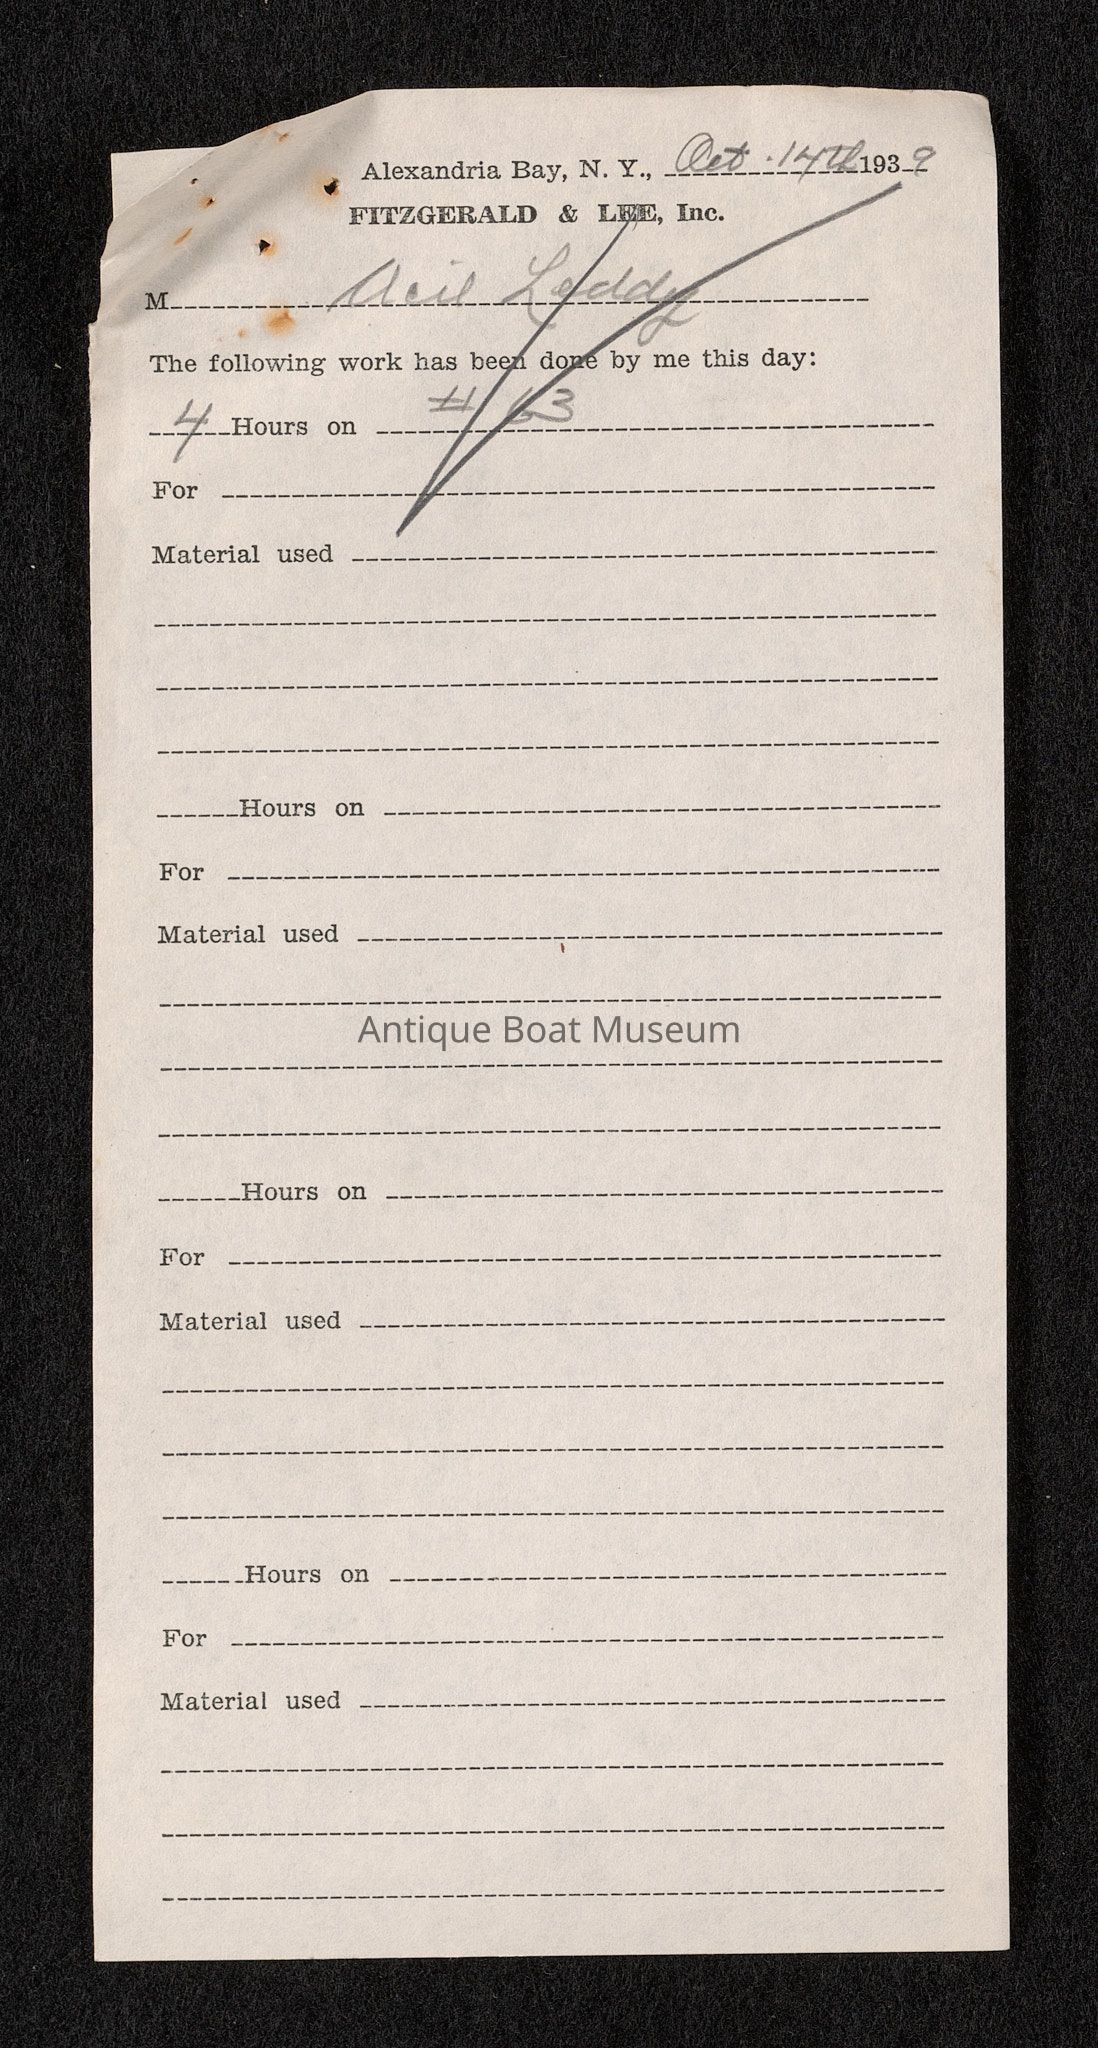 Alexandria Bay, N. Y., Oct. 14th 1939
FITZGERALD & LEE, Inc.
M Leddy
The following work has been done by me this day:
4 Hours on # 63
For
Material used
Hours on
For
Material used
Antique Boat Museum
Hours on
For
Material used
Hours on
For
Material used